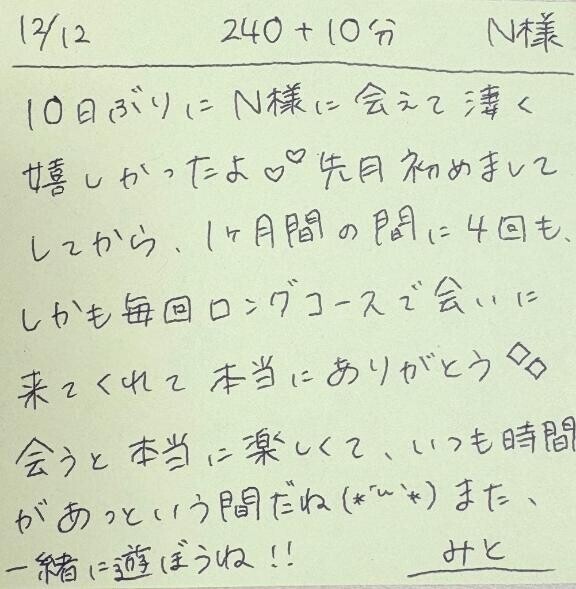 12/12 240+10分 N様
10日ぶりにN様に会えて凄く
嬉しかったよ♡♡先月初めまして
してから、1ヶ月間の間に4回も、
しかも毎回ロングコースで会いに
来てくれて本当にありがとう◇◇
会うと本当に楽しくて、いつも時間
があっという間だね(*´ω`*)また、
一緒に遊ぼうね!! みと